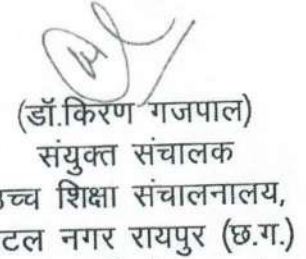 (डॉ.किरण गजपाल)
संयुक्त संचालक
शिक्षा संचालनालय,
नगर रायपुर (छ.ग.)